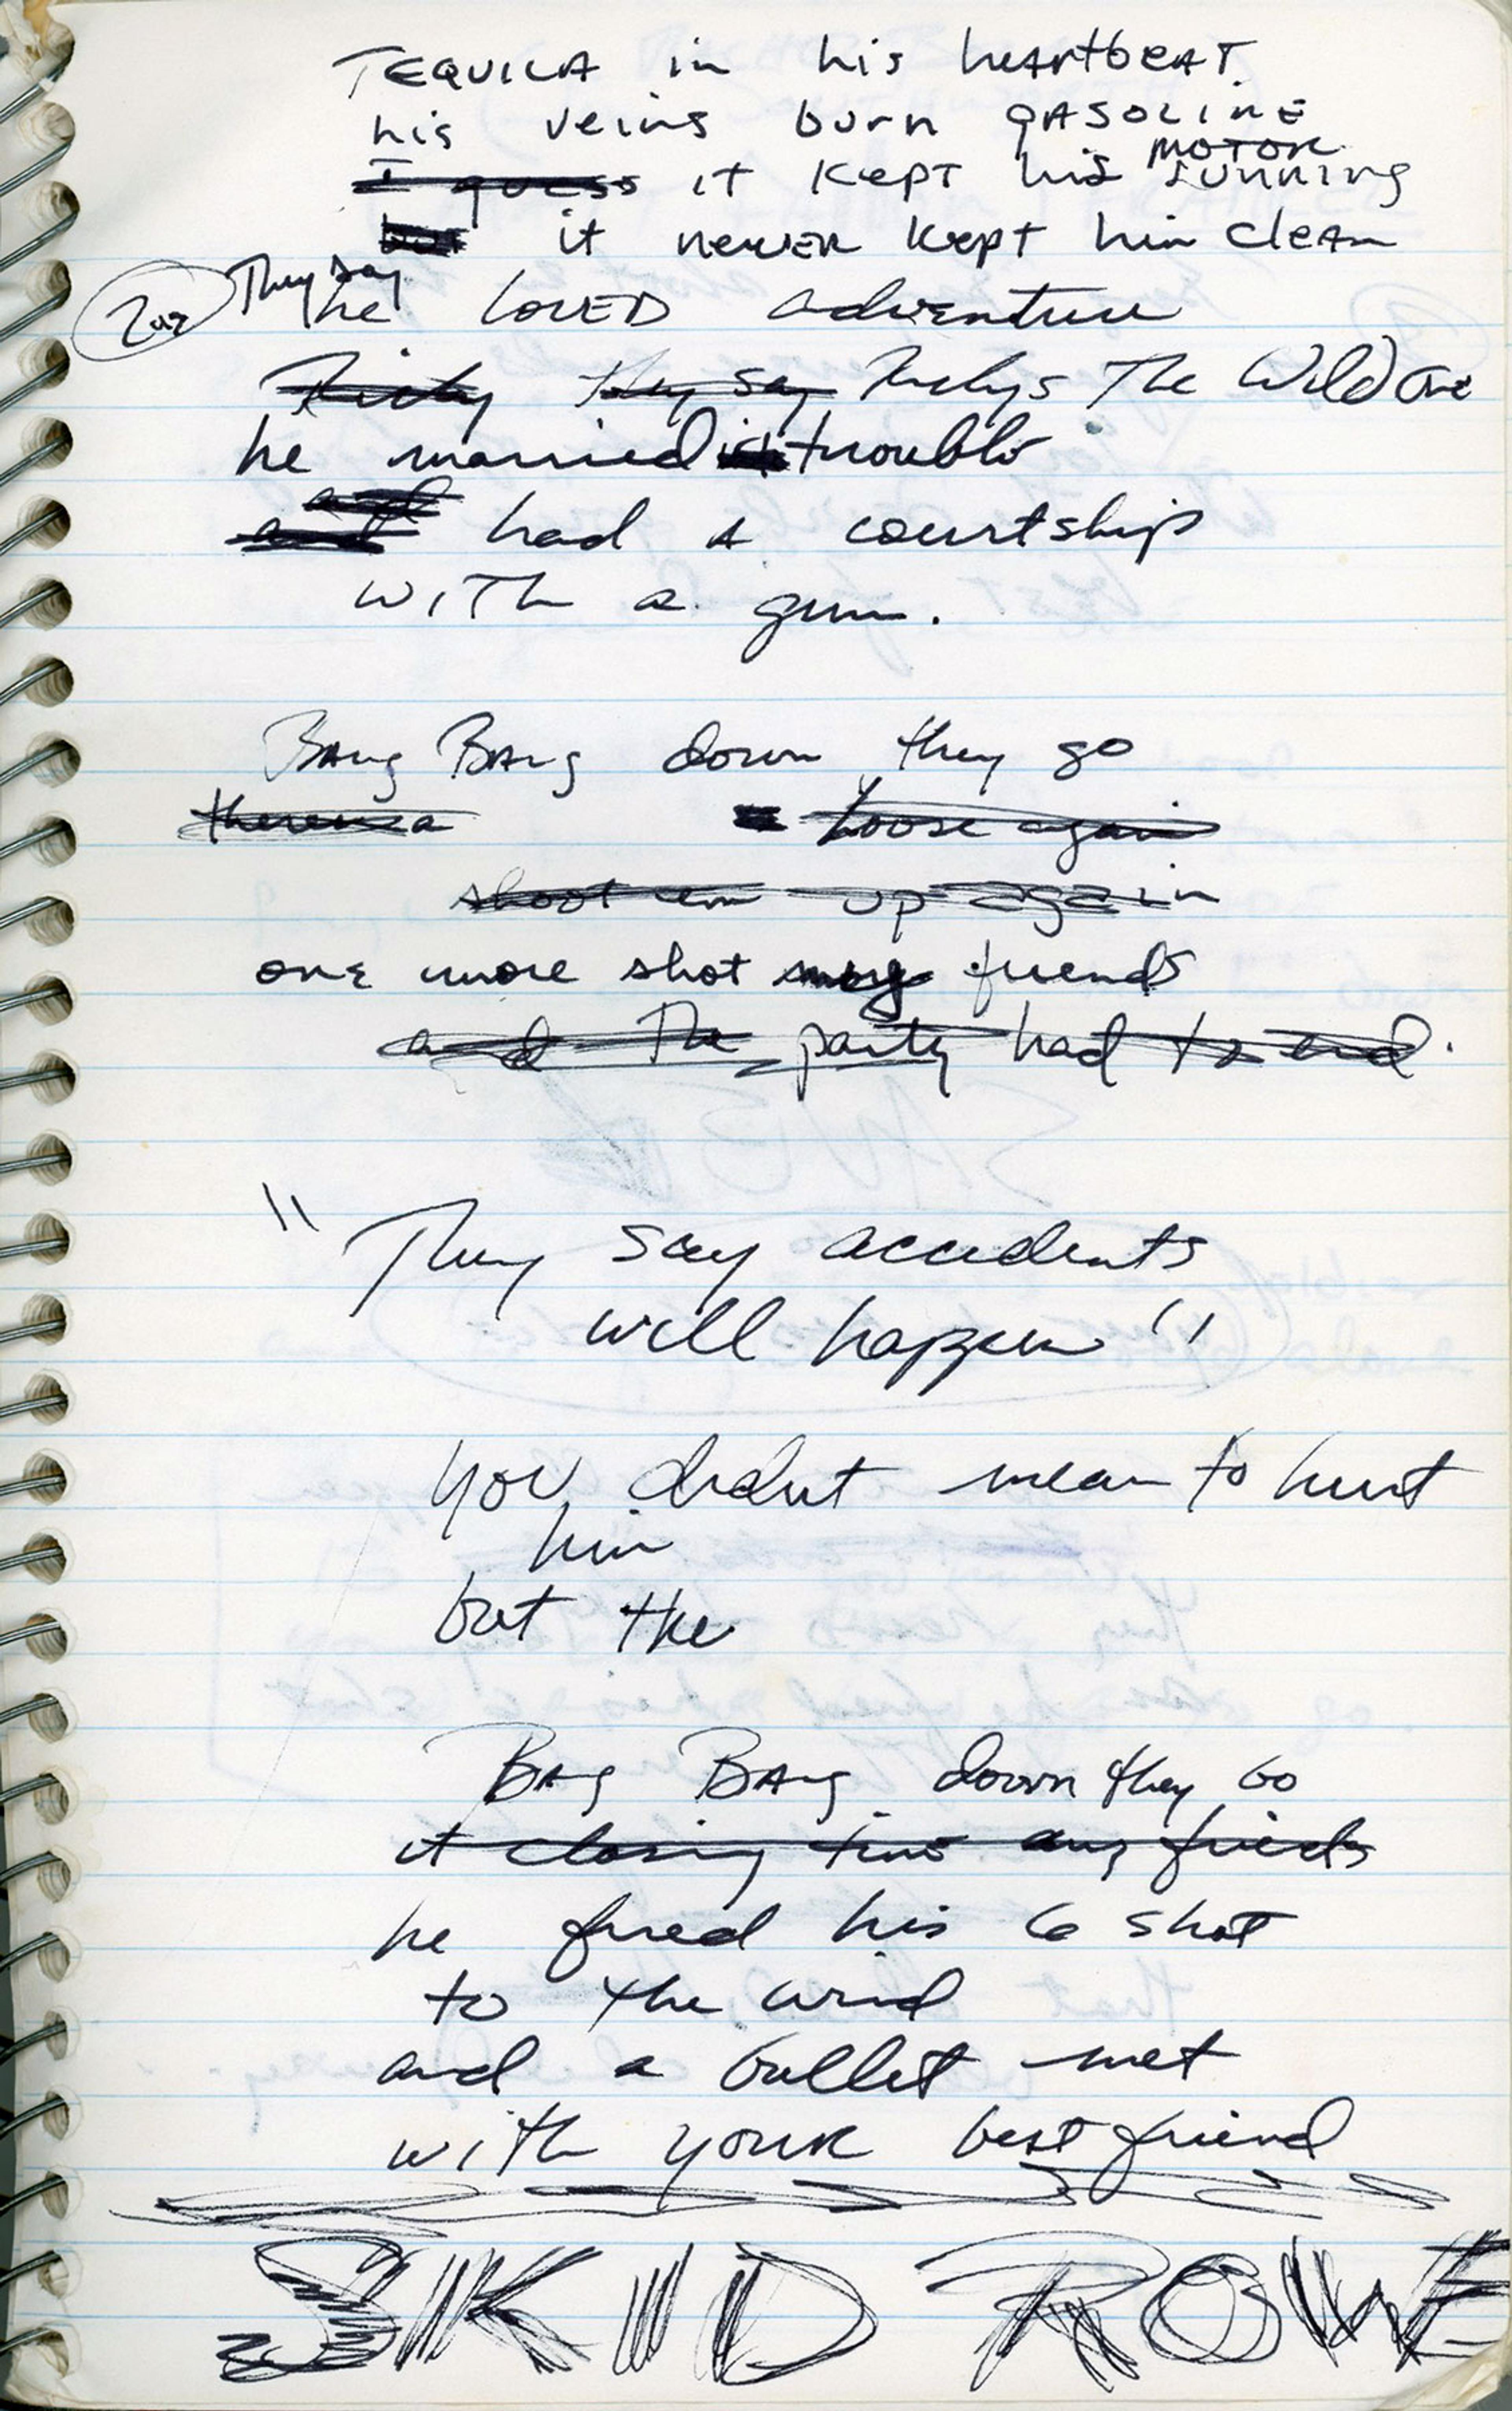 TEQUILA in his heartbeat.
his veins burn gasoline
MOTOR
I guess it kept his running
but it never kept him clean
They say
2nd he loved adventure
Ricky they say Ricky's The Wild One
he married trouble
and
and had a courtship
with a gun.
Bang Bang down they go
theres a loose again
shoot em up again
one more shot my friends
and The party had to end.
"They say accidents
will happen"
you didnt mean to hurt
him
but the
Bag Bang down they Go
it closing time my friends
he fired his 6 shot
to the wind
and a bullet met
with your best friend
SKID ROWE